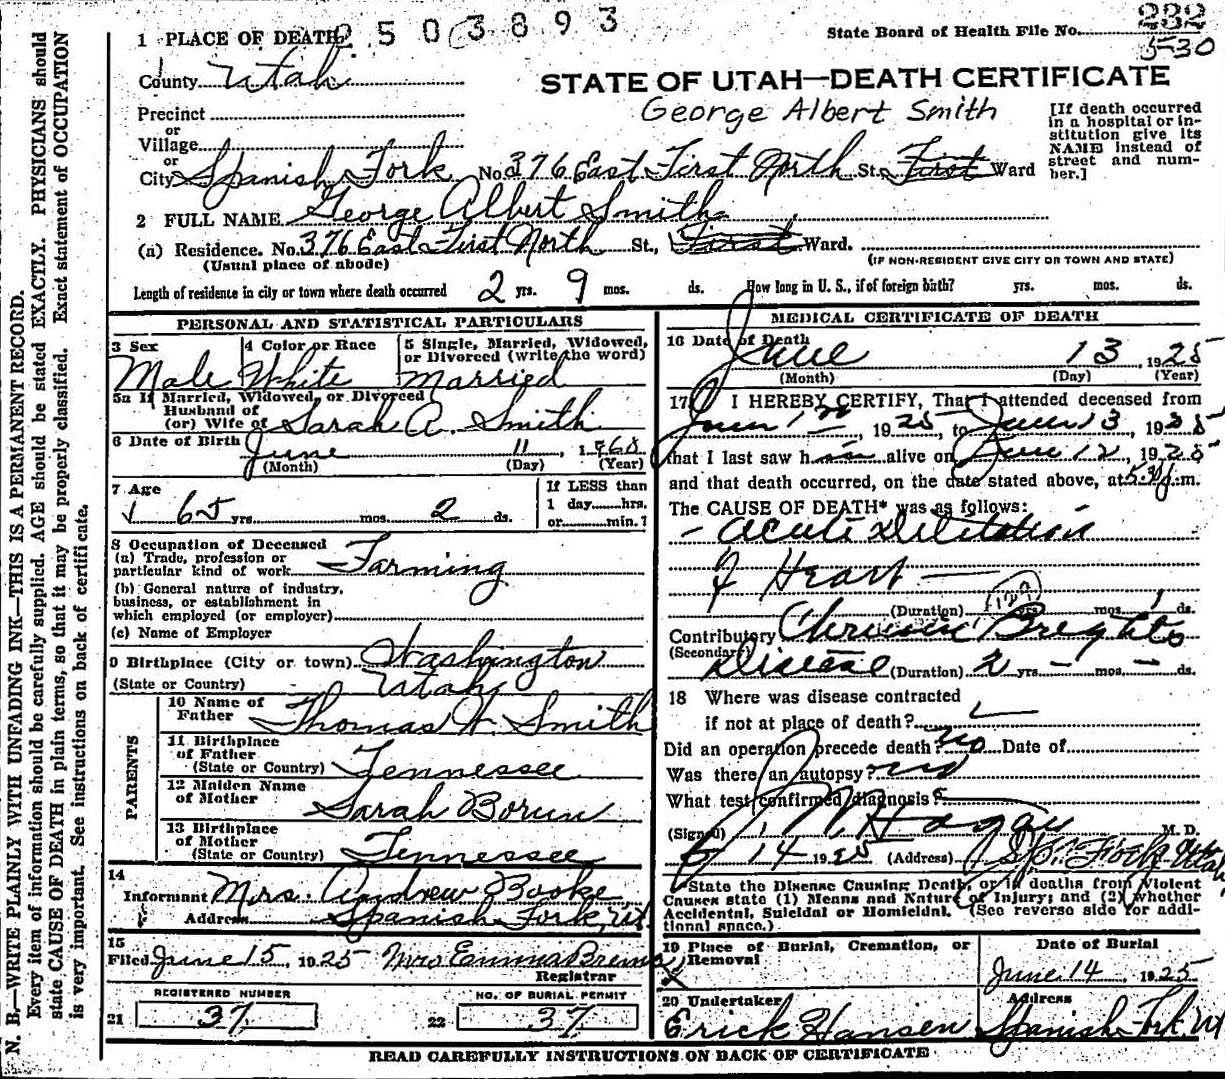 2503893
232
1 PLACE OF DEATH
State Board of Health File No.
5-30
County Utah
STATE OF UTAH—DEATH CERTIFICATE
Precinct
George Albert Smith
[If death occurred in a hospital or institution give its NAME instead of street and number.]
or
Village
or
City Spanish Fork No. 376 East First North St. First Ward
2 FULL NAME George Albert Smith
(a) Residence. No. 376 East First North St., First Ward.
(Usual place of abode)
(IF NON-RESIDENT GIVE CITY OR TOWN AND STATE)
Length of residence in city or town where death occurred 2 yrs. 9 mos. ds. How long in U. S., if of foreign birth? yrs. mos. ds.
PERSONAL AND STATISTICAL PARTICULARS
3 Sex
Male
4 Color or Race
White
5 Single, Married, Widowed, or Divorced (write the word)
Married
5a If Married, Widowed, or Divorced
Husband of
(or) Wife of Sarah A. Smith
6 Date of Birth June 11, 1
(Month) (Day) (Year)
7 Age
65 yrs. mos. 2 ds.
If LESS than
1 day......hrs.
or......min.?
8 Occupation of Deceased
(a) Trade, profession or
particular kind of work Farming
(b) General nature of industry,
business, or establishment in
which employed (or employer)
(c) Name of Employer
9 Birthplace (City or town) Washington
(State or Country) Utah
PARENTS
10 Name of
Father Thomas W. Smith
11 Birthplace
of Father
(State or Country) Tennessee
12 Maiden Name
of Mother Sarah Boren
13 Birthplace
of Mother
(State or Country) Tennessee
14
Informant Mrs. Andrew Booke
Address Spanish Fork, Ut
15
Filed June 15, 1925 Mrs Emma Brems
Registrar
REGISTERED NUMBER
21 37
NO. OF BURIAL PERMIT
22 37
MEDICAL CERTIFICATE OF DEATH
16 Date of Death
June 13, 1925
(Month) (Day) (Year)
17 I HEREBY CERTIFY, That I attended deceased from
June 1, 1925, to June 13, 1925
that I last saw him alive on June 12, 1925
and that death occurred, on the date stated above, at 5:30 p.m.
The CAUSE OF DEATH* was as follows:
- Acute Dilitation
of Heart —
(Duration) yrs. mos. 1 ds.
Contributory Chronic Brights
(Secondary)
Disease (Duration) 2 yrs. - mos. - ds.
18 Where was disease contracted
if not at place of death?
Did an operation precede death? no Date of
Was there an autopsy? no
What test confirmed diagnosis?
(Signed) Hagan M. D.
6/14 1925 (Address) Sp. Fork Utah
*State the Disease Causing Death, or in deaths from Violent
Causes state (1) Means and Nature of Injury; and (2) whether
Accidental, Suicidal or Homicidal. (See reverse side for addi-
tional space.)
19 Place of Burial, Cremation, or
Removal
Date of Burial
June 14 1925
20 Undertaker
Erick Hansen
Address
Spanish Fork, Ut
READ CAREFULLY INSTRUCTIONS ON BACK OF CERTIFICATE
N. B.—WRITE PLAINLY WITH UNFADING INK—THIS IS A PERMANENT RECORD.
Every item of information should be carefully supplied. AGE should be stated EXACTLY. PHYSICIANS should
state CAUSE OF DEATH in plain terms, so that it may be properly classified. Exact statement of OCCUPATION
is very important. See instructions on back of certificate.